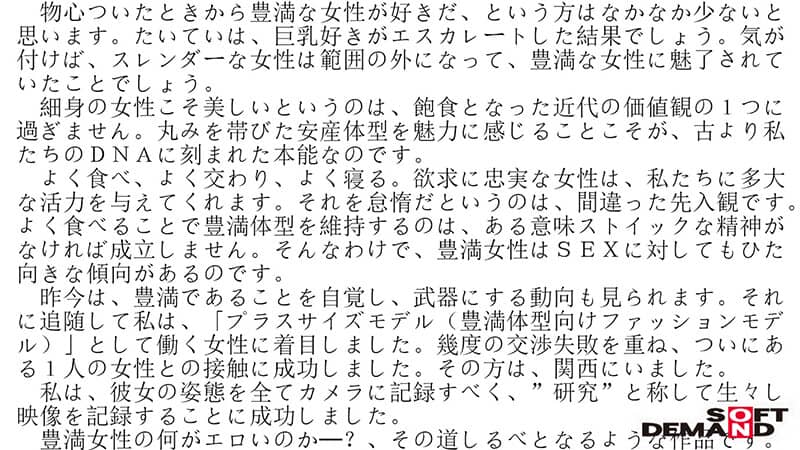 物心ついたときから豊満な女性が好きだ、という方はなかなか少ないと
思います。たいていは、巨乳好きがエスカレートした結果でしょう。気が
付けば、スレンダーな女性は範囲の外になって、豊満な女性に魅了されて
いたことでしょう。
　細身の女性こそ美しいというのは、飽食となった近代の価値観の１つに
過ぎません。丸みを帯びた安産体型を魅力に感じることこそが、古より私
たちのＤＮＡに刻まれた本能なのです。
　よく食べ、よく交わり、よく寝る。欲求に忠実な女性は、私たちに多大
な活力を与えてくれます。それを怠惰だというのは、間違った先入観です。
よく食べることで豊満体型を維持するのは、ある意味ストイックな精神が
なければ成立しません。そんなわけで、豊満女性はＳＥＸに対してもひた
向きな傾向があるのです。
　昨今は、豊満であることを自覚し、武器にする動向も見られます。それ
に追随して私は、「プラスサイズモデル（豊満体型向けファッションモデ
ル）」として働く女性に着目しました。幾度の交渉失敗を重ね、ついにあ
る１人の女性との接触に成功しました。その方は、関西にいました。
　私は、彼女の姿態を全てカメラに記録すべく、”研究”と称して生々し
い映像を記録することに成功しました。
　豊満女性の何がエロいのか―？、その道しるべとなるような作品です。
SOFT
DEMAND